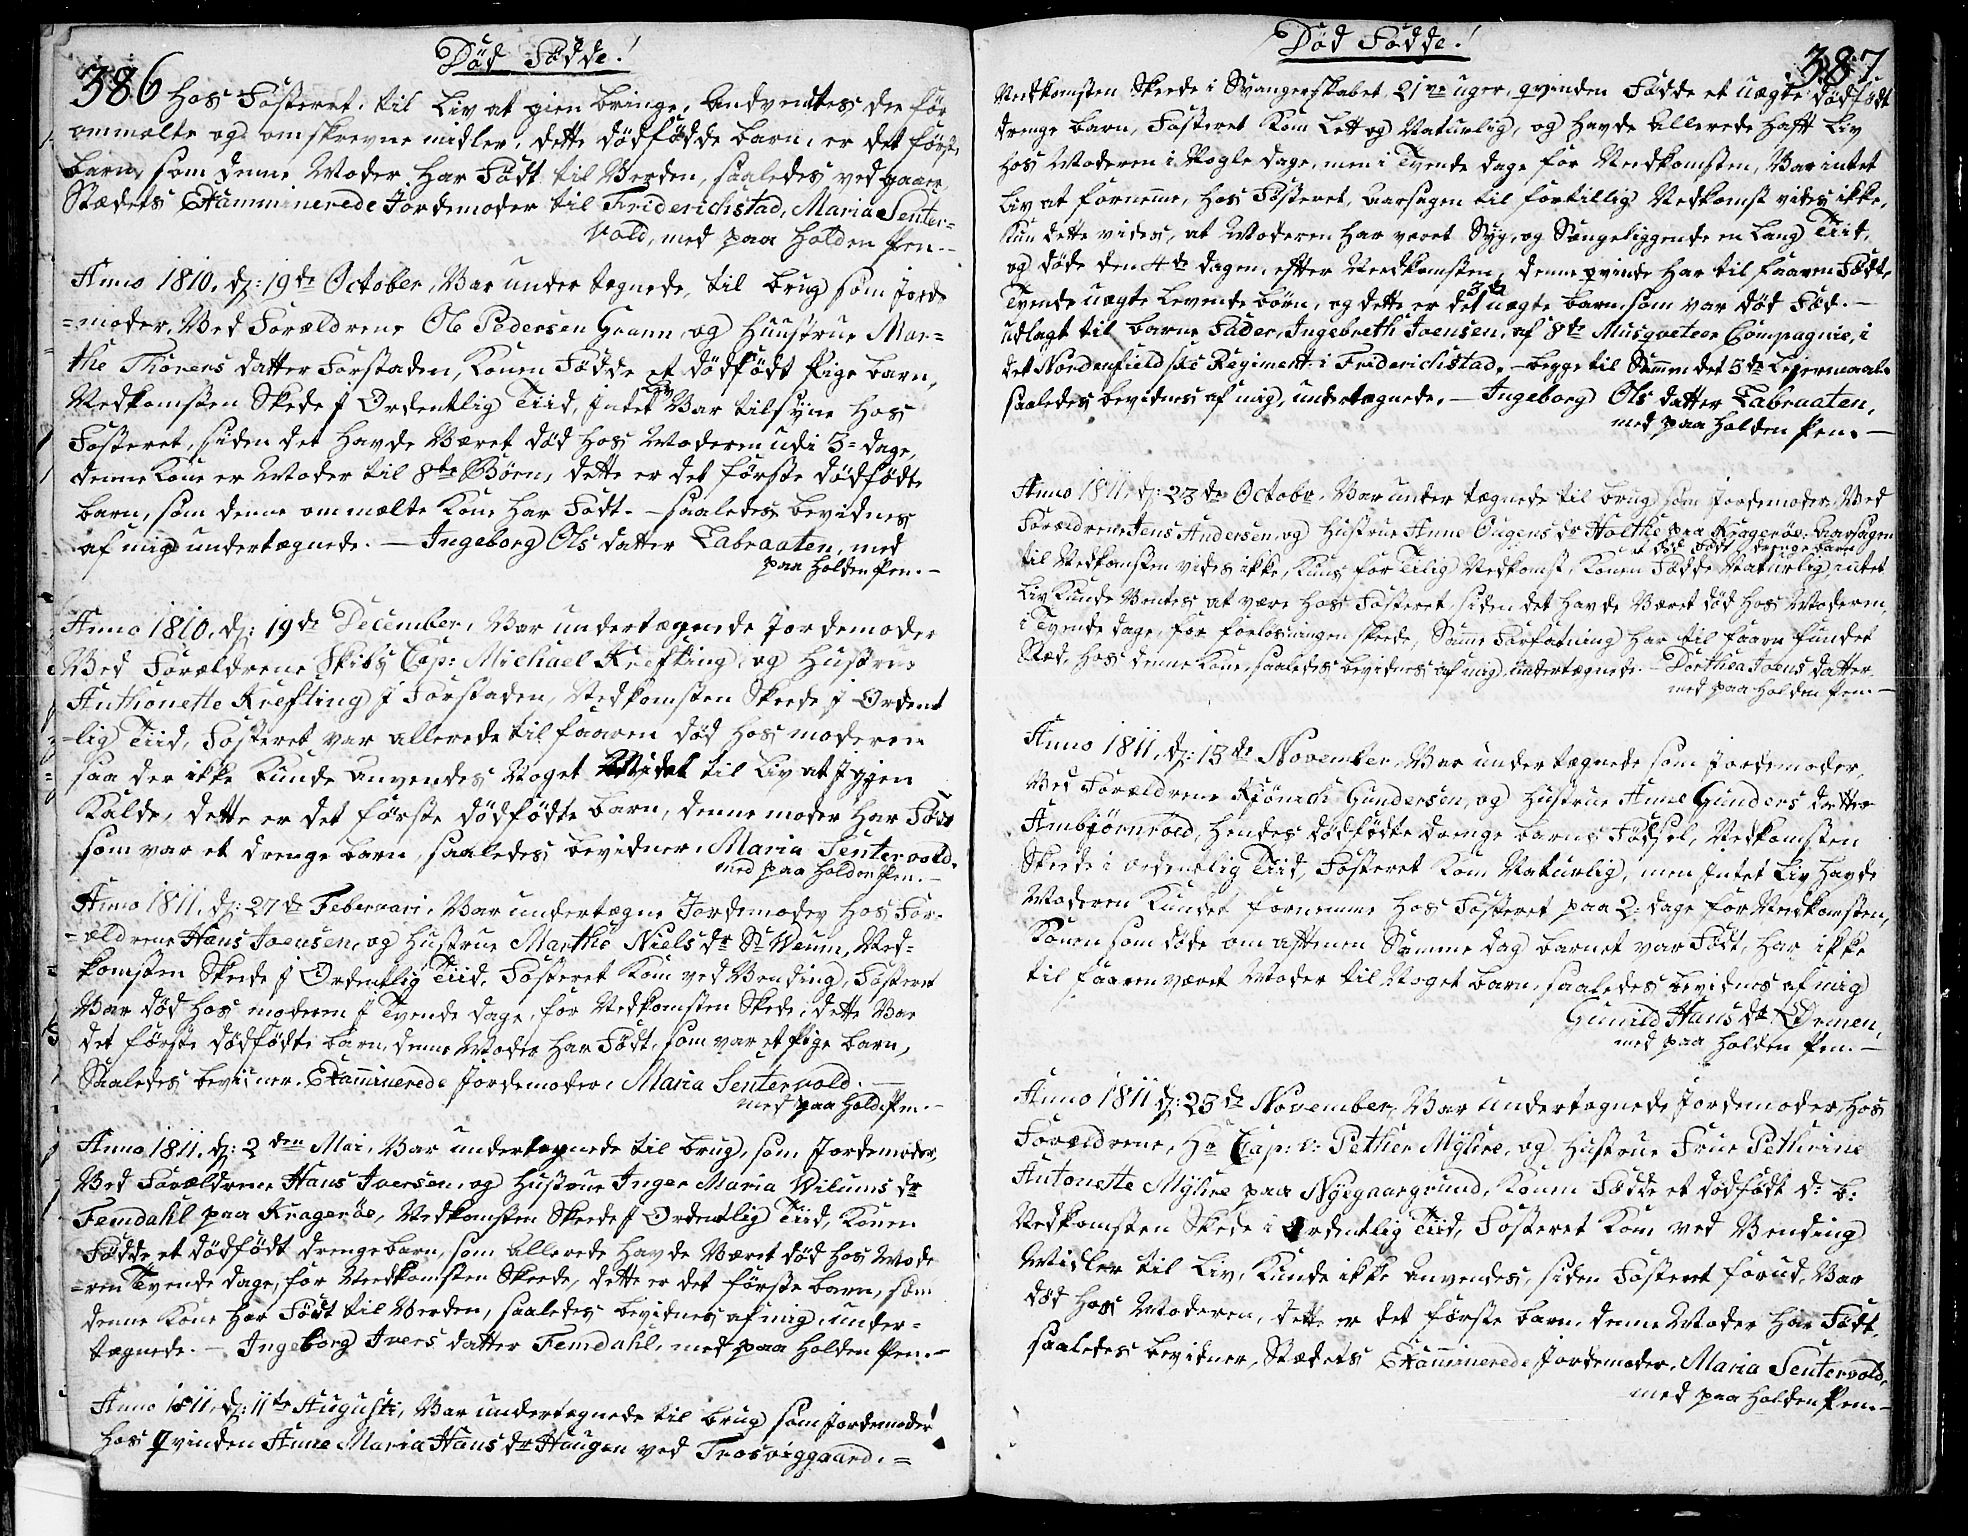 Död Födde!
386 Hos Fosteret, til Liv at gien bringe, Andventes de før
ommelte og omskrevne midler, dette dödfödde barn, er det först
barn, som denne Moder Har Födt til Verden, saaledes ved
Stædets Examminerede Jordemoder til Friderichstad, Maria Senter-
vold, med paa Holden Pen. -
Anno 1810, d: 19de October, Var under tegnede, til brug som Jorde
=moder, Ved Forældrene Ole Pedersen Grann og Huustrue Mar=
the Thorers datter Forstaden, Konen Födde et dödfödt Pige barn,
Nedkomsten Skede J Ordentlig Tiid, Jntet Liv Var tilsyne Hos
Fosteret, siden det Havde Været död Hos Moderen udi 3= dage,
denne Kone er Moder til 8te Börn, dette er det förste dödfödte
barn, som denne ommælte Kone Har Födt. - saaledes bevidnes
af mig undertegnede. - Ingeborg Ols datter Labraaten, med
paa Holden Pen. -
Anno 1810, d: 19de December, Var undertegnede Jordemoder
Ved Forældrene Skibs Cap: Michael Krefting, og Hustrue
Anthonette Krefting J Forstaden, Nedkomsten Skeede J Ordent
-lig Tiid, Fosteret var allerede til faaren död Hos moderen
saa der ikke Kunde Anvendes Noget Midel til Liv at Jgjen
Kalde, dette er det förste dödfödte barn, denne moder Har Födt
som var et drenge barn, saaledes bevidner, Maria Sentervold.
med paa Holden Pen. -
Anno 1811, d: 27de Februari, Var undertegne Jordemoder Hos For-
-ældrene Hans Joensen, og Hustrue Marthe Niels dr St Weum, Ned-
komsten Skeede J Ordentlig Tiid, Fosteret Kom ved Vending, Fosteret
Var död Hos moderen J Tvende dage, for Nedkomsten Skede, dette Var
det förste dödfödte barn, denne Moder Har Födt, som var et Pige barn,
Saaledes bevidner, Examinerede Jordemoder, Maria Sentervold. -
med paa Hold: Pen. -
Anno 1811, d: 2den Mai, Var undertegnede til brug, som Jordemoder,
Ved Forældrene Hans Iversen, og Hustrue Inger Maria Wilums dr
Femdahl paa Kragerøe, Nedkomsten Skeede J Ordentlig Tiid, Konen
Födde et dödfödt drengebarn, som Allerede Havde Været död Hos Mode
-ren Tvende dage, for Nedkomsten Skeede, dette er det förste barn, som
denne Kone Har Födt til Verden, saaledes bevidnes af mig under-
tegnede. - Ingeborg Ivers datter Femdahl, med paa Holden Pen. -
Anno 1811, d: 11te Augusti, Var undertegnede til brug som Jordemoder
Hos Qvinden Anne Maria Hans dr Haugen ved Trosviggaard. =
Död Födde!
387
Nedkomsten Skeede i Svangerskabet, 21ve uger, qvinden Födde et uægte dödfödt
drenge barn, Fosteret Kom Let og Naturlig, og Havde Allerede Haft Liv
Hos Moderen i Nogle dage, men i Tvende dage for Nedkomsten, Var intet
Liv at fornemme, Hos Fosteret, Aarsagen til for tillig Nedkomst vides ikke.
Kun dette vides, at Moderen Har været Syg, og Sengeliggende en Lang Tiid,
og döde den 4de dagen, efter Nedkomsten, denne qvinde Har til faaren Födt
Tvende uægte Levende börn, og dette er det 3de uægte barn, som var död Föd. -
udlagt til barne Fader, Ingebreth Joensen, af 8de Musqveteer Compagnie, i
det Nordenfieldske Regiment i Friderichstad. - begge til Sammen det 5te Lejermaal.
saaledes bevidnes af mig, undertegnede. - Ingeborg Ols datter Labraaten,
med paa Holden Pen. -
Anno 1811, d: 23de Octobr, Var under tegnede til brug som Jordemoder, Ved
Forældrene Jens Andersen, og Hustrue Anne Ougens dr Holthe paa Kragerøe. Aarsagen
til Nedkomsten vides ikke, Kuns for Tilig Nedkomst, Konen Födde et död Födt drenge barn Naturlig, intet
Liv Kunde Ventes, at være Hos Fosteret, siden det Havde Været död Hos Moderen,
i Tvende dage, for forlösningen skeede, Samme Forfatning Har til faarn fundet
Sted, Hos denne Kone, saaledes bevidnes af mig undertegnede. - Dorthea Joens datter
med paa Holden Pen. -
Anno 1811, d: 13de November, Var under tegnede som Jordemoder,
Ved Forældrene Kjönich Gundersen, og Hustrue Anne Gunders datter
Ambjörnröd, Hendes dödfödte drenge barns Födsel, Nedkomsten
Skeede i ordentlig Tiid, Fosteret Kom Naturlig, men Jntet Liv Havde
Moderen Kundet fornemme Hos Fosteret paa 2: dage for Nedkomsten,
Konen som döde om Aftenen Samme dag barnet var Födt, Har ikke
til faaren været Moder til Noget barn, saaledes bevidnes af mig
Gunild Hans dr Ormen,
med paa Holden Pen. -
Anno 1811 d: 23de November, Var undertegnede Jordemoder, Hos
Forældrene, Hr Cap: v: Pether Myhre, og Hustrue Frue Petherine
Antonette Myhre paa Nygaardsgrund, Konen Födde et dödfödt d: b:
Nedkomsten Skede i Ordentlig Tiid, Fosteret Kom ved Vending
Midler til Liv, Kunde ikke Anvendes, siden Fosteret forud, Var
död Hos Moderen, dette er det förste barn, denne Moder Har Födt,
saaledes bevidner, Stædets Examinerede Jordemoder, Maria Sentervold,
med paa Holden Pen. -